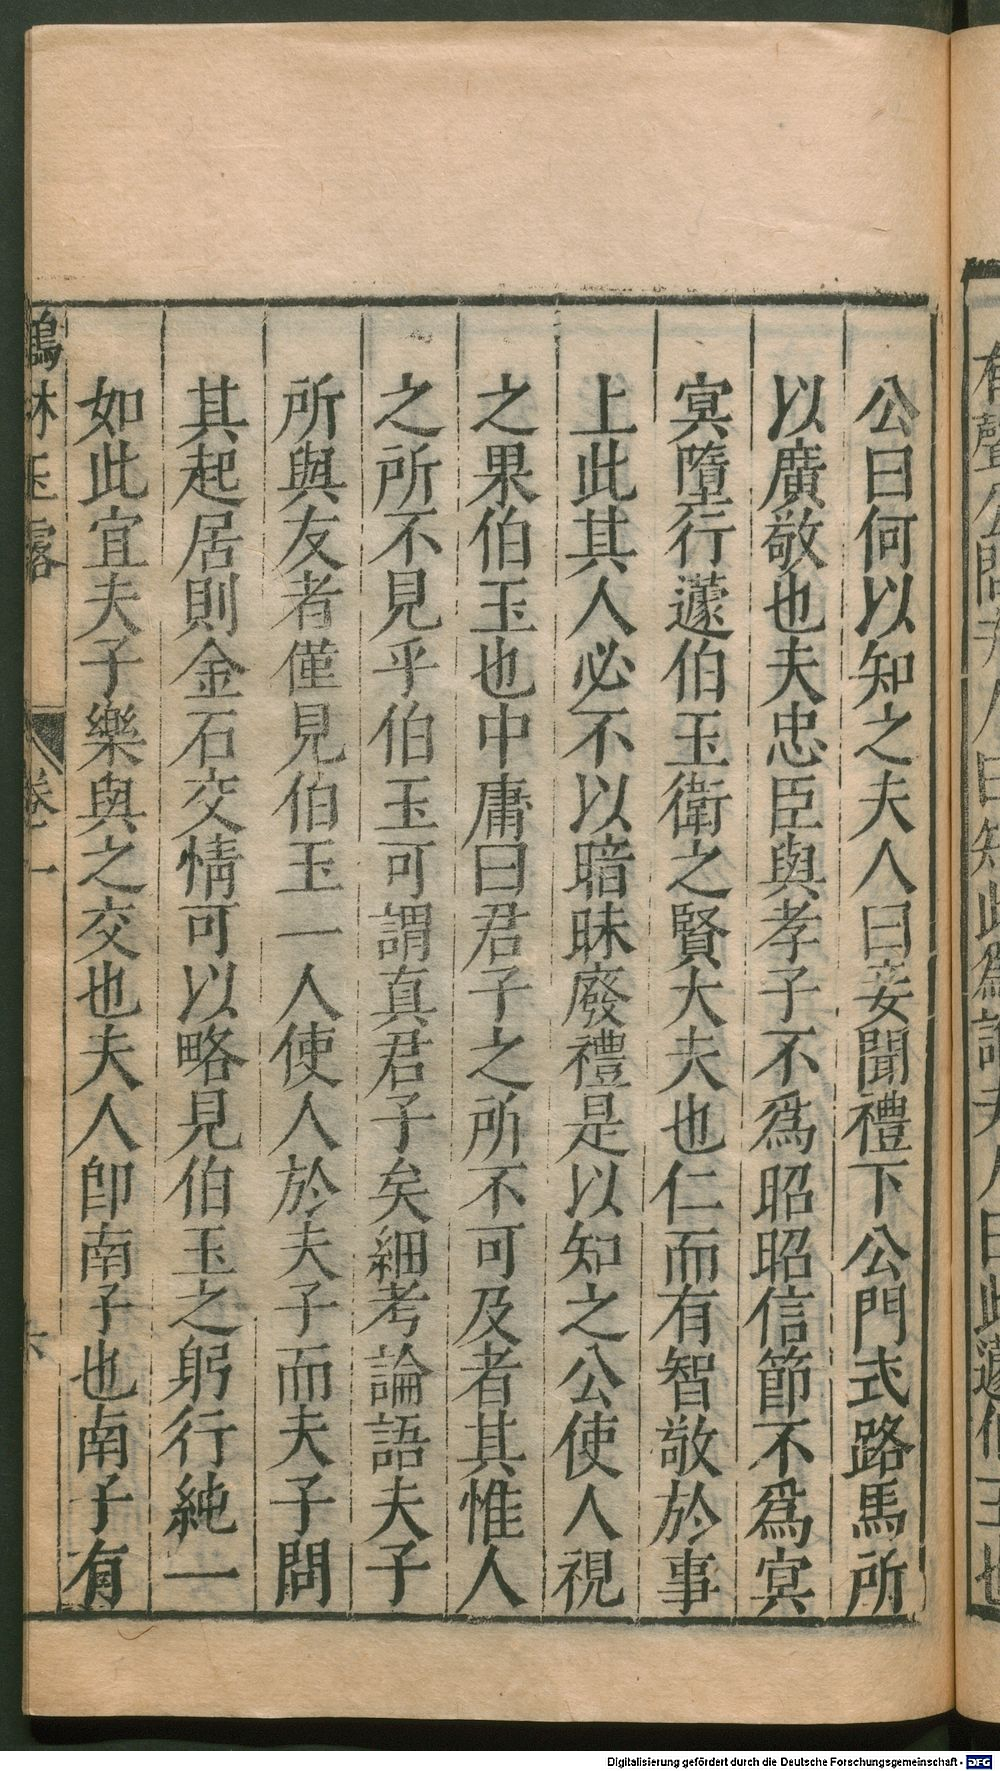 公曰何以知之夫人曰妾聞禮下公門式路馬所
以廣敬也夫忠臣與孝子不爲昭昭信節不爲冥
冥墮行蘧伯玉衛之賢大夫也仁而有智敬於事
上此其人必不以暗昧廢禮是以知之公使人視
之果伯玉也中庸曰君子之所不可及者其惟人
之所不見乎伯玉可謂真君子矣細考論語夫子
所與友者僅見伯玉一人使人於夫子而夫子問
其起居則金石交情可以略見伯玉之躬行純一
如此宜夫子樂與之交也夫人卽南子也南子有
鶴林玉露 卷一 六
Digitalisierung gefördert durch die Deutsche Forschungsgemeinschaft - DFG